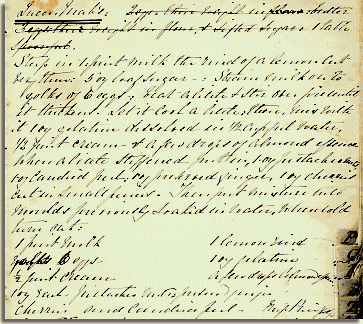 Queen Mab's:
their weight in flour, & Sifted Sugar 1 Table
Spoonful.
Steep in 1 pint milk the rind of a lemon cut
thin: 5 oz loaf Sugar - : Strain milk on to
yolks of 6 eggs: heat a little & Stir over fire until
it thickens. Let it Cool a little, then mix with
it 1 oz gelatine dissolved in water,
1/2 pint cream & a few drops of almond essence
when a little stiffened put in, 1 oz pistachio nuts
1 oz Candied peel, 1 oz preserved ginger, 1 oz cherries
cut in small pieces - Then put mixture into
moulds previously soaked in water, when cold
turn out:
1 pint milk 1 lemon rind
6 eggs 1 oz gelatine
1/2 pint cream a few drops Almond
1 oz each pistachio nuts preserved ginger
Cherries and Candied peel -